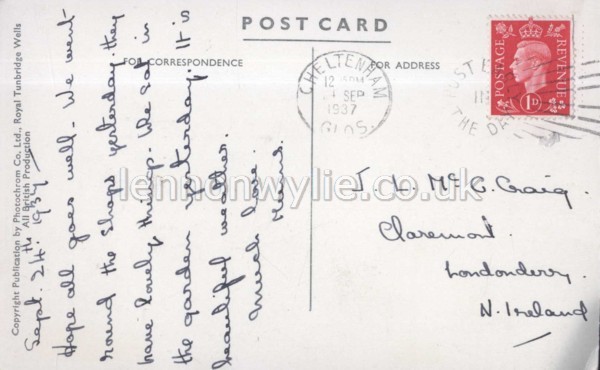 POST CARD
FOR CORRESPONDENCE
FOR ADDRESS
Copyright Publication by Photochrom Co. Ltd., Royal Tunbridge Wells
All British Production
Sept. 24th 1937
Hope all goes well. We went
round the shops yesterday, they
have lovely things. We sat in
the garden yesterday. It is
beautiful weather.
Much love.
CHELTENHAM
SEP
1937
GLOS.
POSTAGE
REVENUE
1D
THE
J. L. McC. Craig.
Claremont.
Londonderry.
N. Ireland
lennonwylie.co.uk